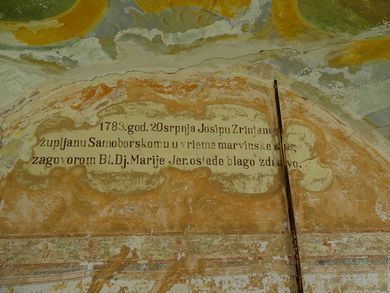 1783.god. 20 srpnja Josipu Zrinjanu
župljanu Samoborskomu u vrieme marvinske
zagovorom Bl.Dj.Marije Jer. ostede blago